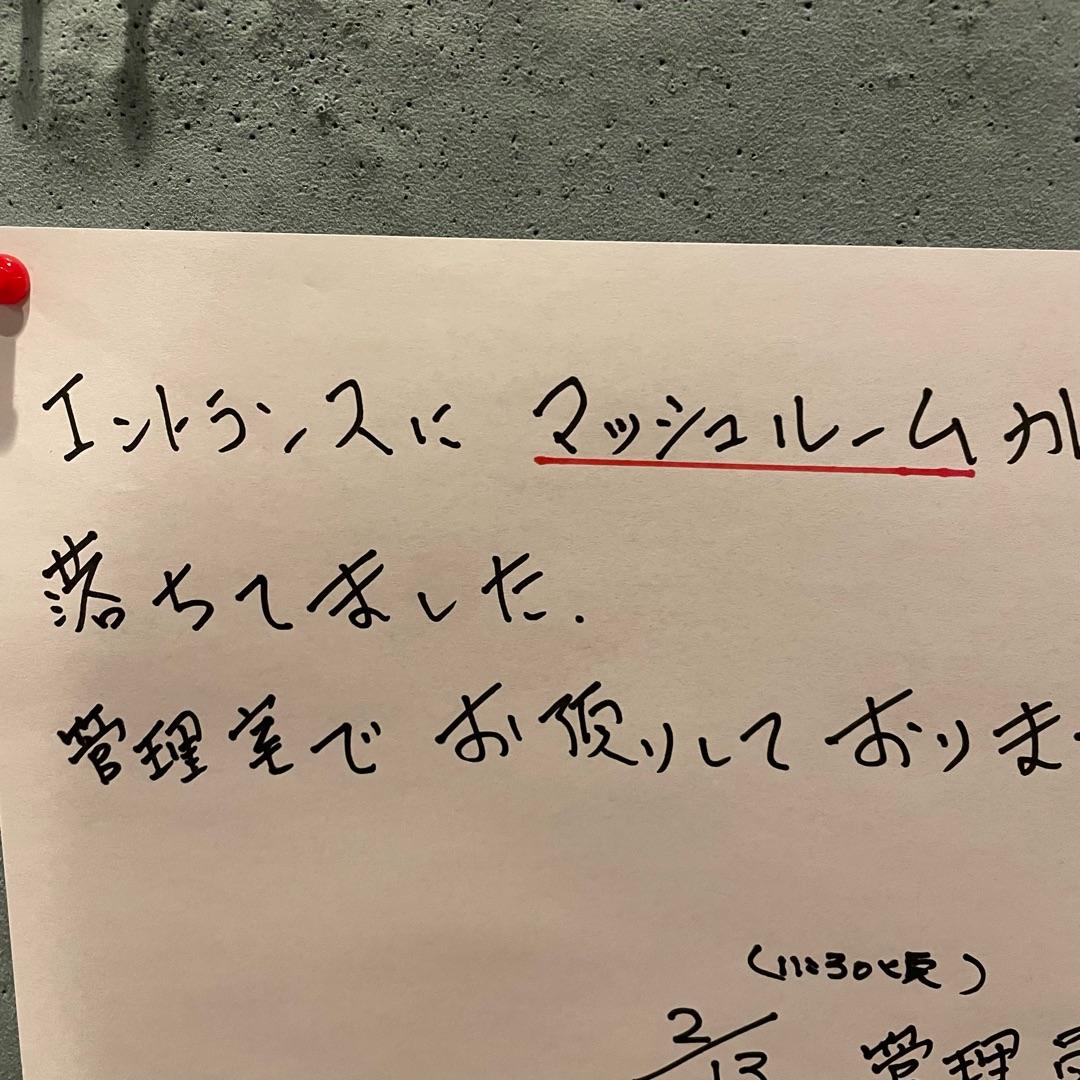 エントランスに マッシュルームが
落ちてました.
管理室で お預りしておりま
(11:30頃)
2/13 管理員